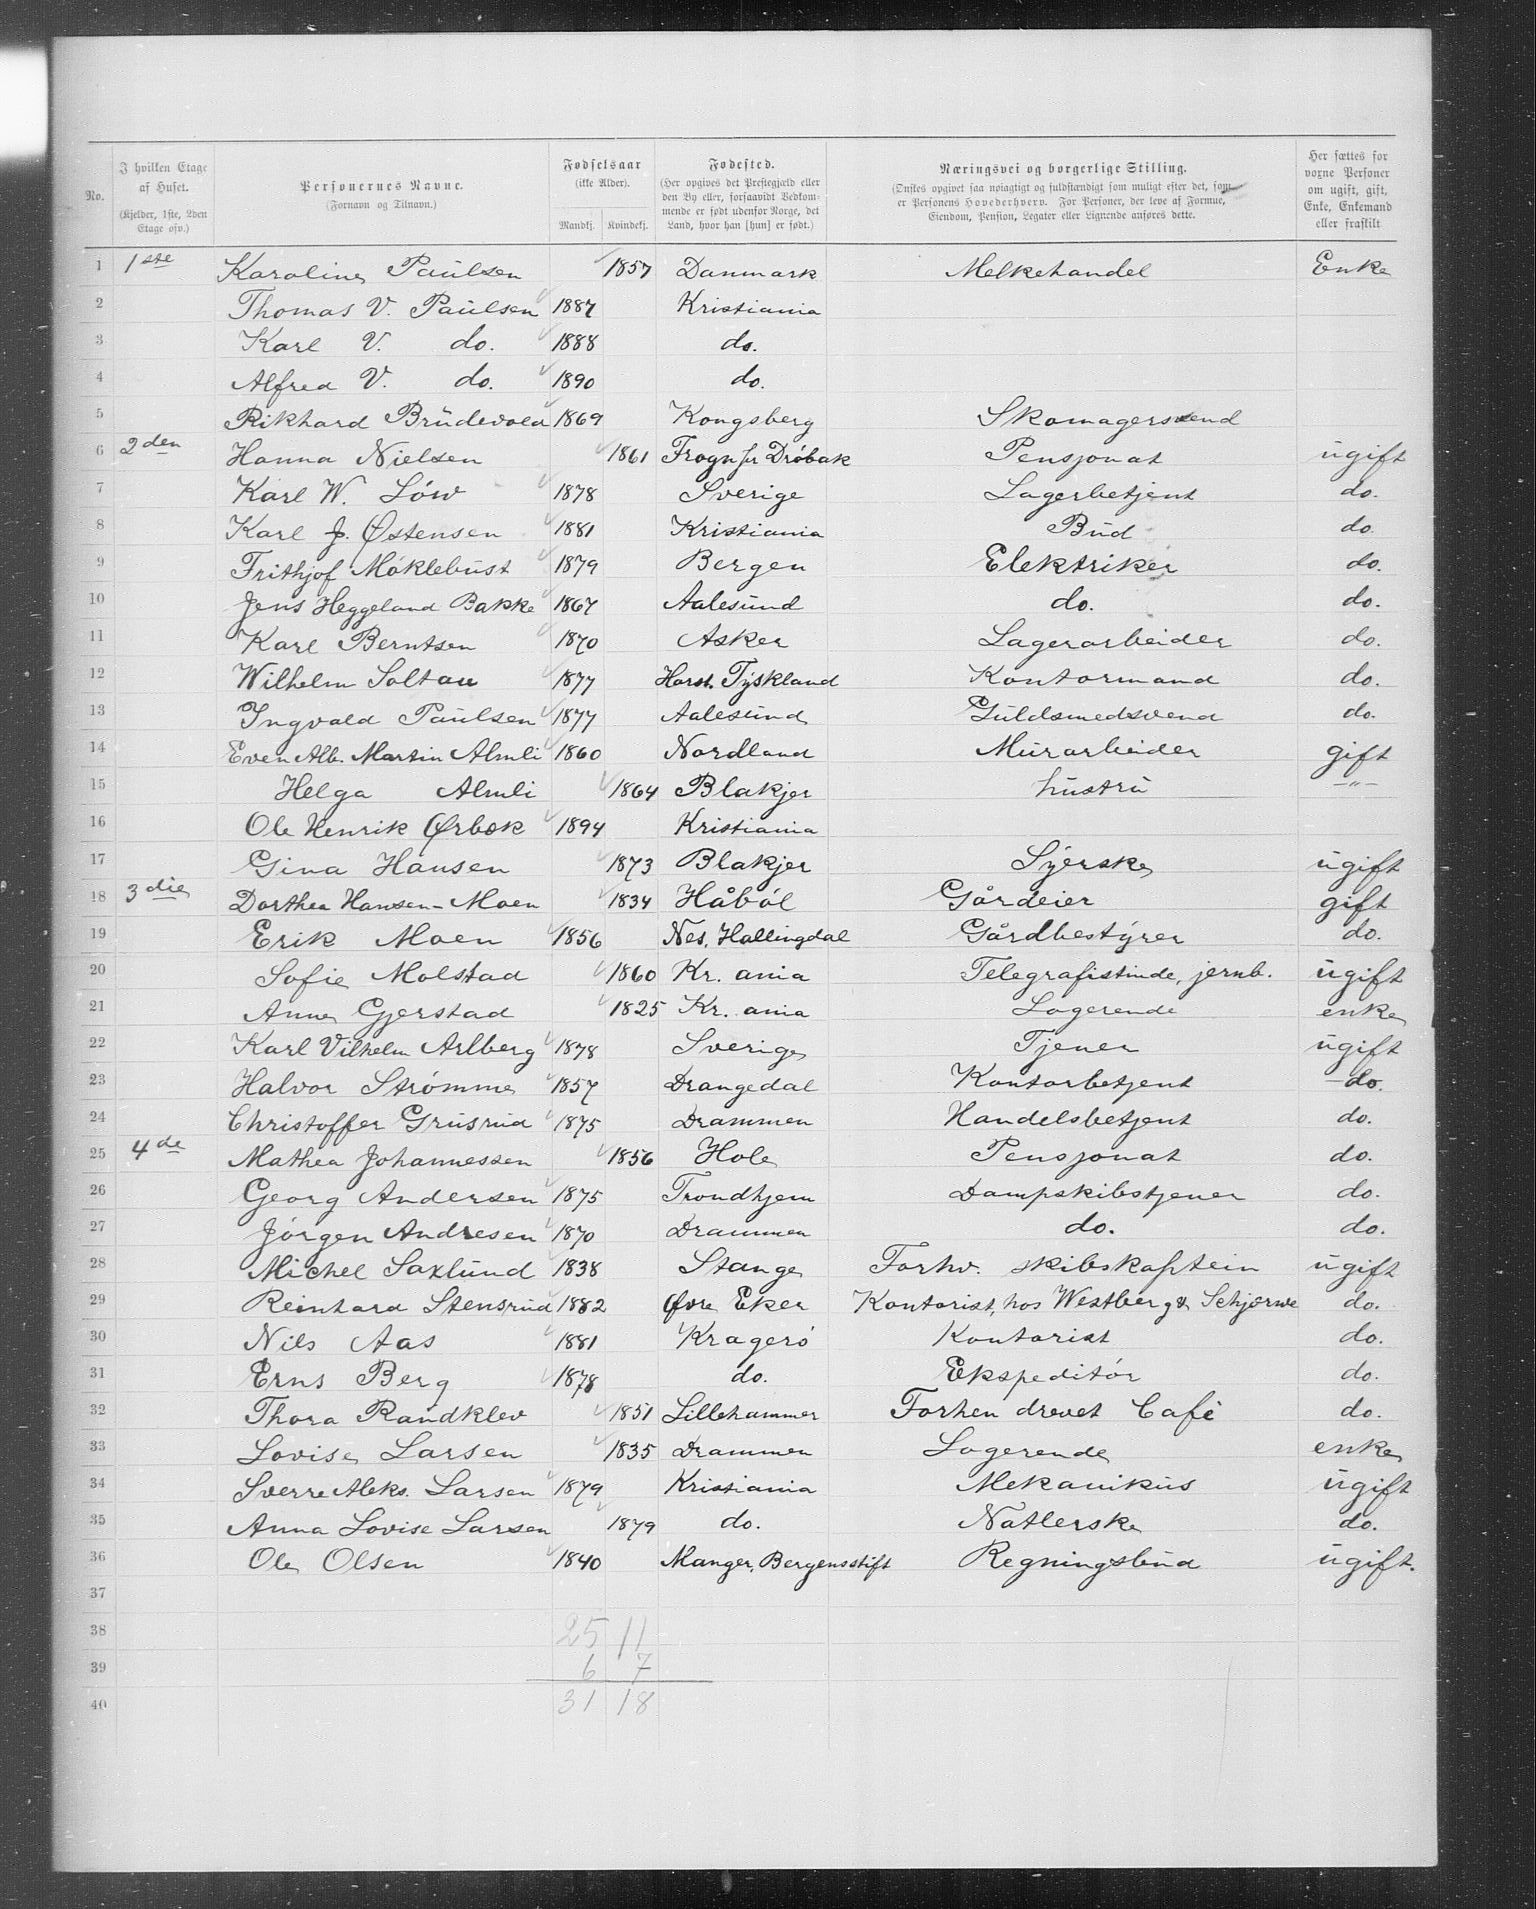 No. I hvilken Etage af Huset. (Kjelder, 1ste, 2den Etage osv.) Personernes Navne. (Fornavn og Tilnavn.) Fødselsaar (ikke Alder). Mandkj. Kvindekj. Fødested. (Her opgives det Prestegjæld eller den By eller, forsaavidt Vedkommende er født udenfor Norge, det Land, hvor han [hun] er født.) Næringsvei og borgerlige Stilling. (Ønskes opgivet saa nøiagtigt og fuldstændigt som muligt efter det, som er Personens Hovederhverv. For Personer, der leve af Formue, Eiendom, Pension, Legater eller Lignende anføres dette. Her sættes for voxne Personer om ugift, gift, Enke, Enkemand eller fraskilt
1 1ste Karoline Paulsen 1857 Danmark Melkehandel Enke
2 Thomas V. Paulsen 1887 Kristiania
3 Karl V. do. 1888 do.
4 Alfred V. do. 1890 do.
5 Rikhard Brudevold 1869 Kongsberg Skomagersvend
6 2den Hanna Nielsen 1861 Frogn pr Drøbak Pensjonat ugift
7 Karl W. Löw 1878 Sverige Lagerbetjent do.
8 Karl J. Østensen 1881 Kristiania Bud do.
9 Frithjof Möklebust 1879 Bergen Elektriker do.
10 Jens Heggeland Bakke 1867 Aalesund do. do.
11 Karl Berntsen 1870 Asker Lagerarbeider do.
12 Wilhelm Soltau 1877 Horst. Tyskland Kontormand do.
13 Ingvald Paulsen 1877 Aalesund Guldsmedsvend do.
14 Even Alb. Martin Almli 1860 Nordland Murarbeider gift
15 Helga Almli 1864 Blakjer hustru -"-
16 Ole Henrik Ørbek 1894 Kristiania
17 Gina Hansen 1873 Blakjer Syerske ugift
18 3die Dorthea Hansen-Moen 1834 Håböl Gårdeier gift
19 Erik Moen 1856 Nes, Hallingdal Gårdbestyrer do.
20 Sofie Molstad 1860 Kr. ania Telegrafistinde, jernb. ugift
21 Anne Gjerstad 1825 Kr. ania Logerende enke
22 Karl Vilhelm Arlberg 1878 Sverige Tjener ugift
23 Halvor Strömme 1857 Drangedal Kontorbetjent do.
24 Christoffer Grusrud 1875 Drammen Handelsbetjent do.
25 4de Mathea Johannessen 1856 Hole Pensjonat do.
26 Georg Andersen 1875 Trondhjem Dampskibstjener do.
27 Jörgen Andresen 1870 Drammen do. do.
28 Michel Saxlund 1838 Stange Forhv. skibskaptein ugift
29 Reinhard Stensrud 1882 Øvre Eker Kontorist, hos Westberg & Schjørwe do.
30 Nils Aas 1881 Kragerö Kontorist do.
31 Erns Berg 1878 do. Ekspeditör do.
32 Thora Randklev 1851 Lillehammer Forhen drevet Café do.
33 Lovise Larsen 1835 Drammen Logerende enke
34 Sverre Aleks. Larsen 1879 Kristiania Mekanikus ugift
35 Anna Lovise Larsen 1879 do. Natlerske do.
36 Ole Olsen 1840 Manger, Bergensstift Regningsbud ugift.
37
38 25 11
39 6 7
40 31 18